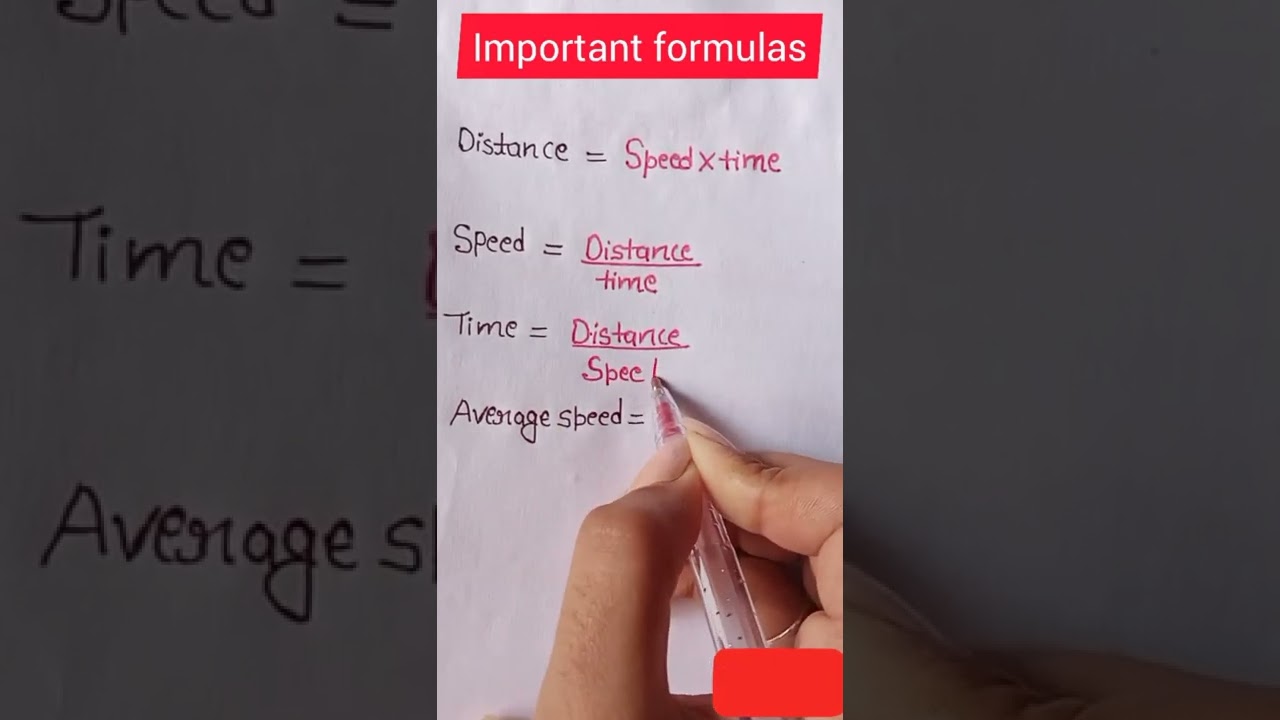 Important formulas
Distance = Speed × time
Speed = Distance
time
Time = Distance
Spec
Average speed =